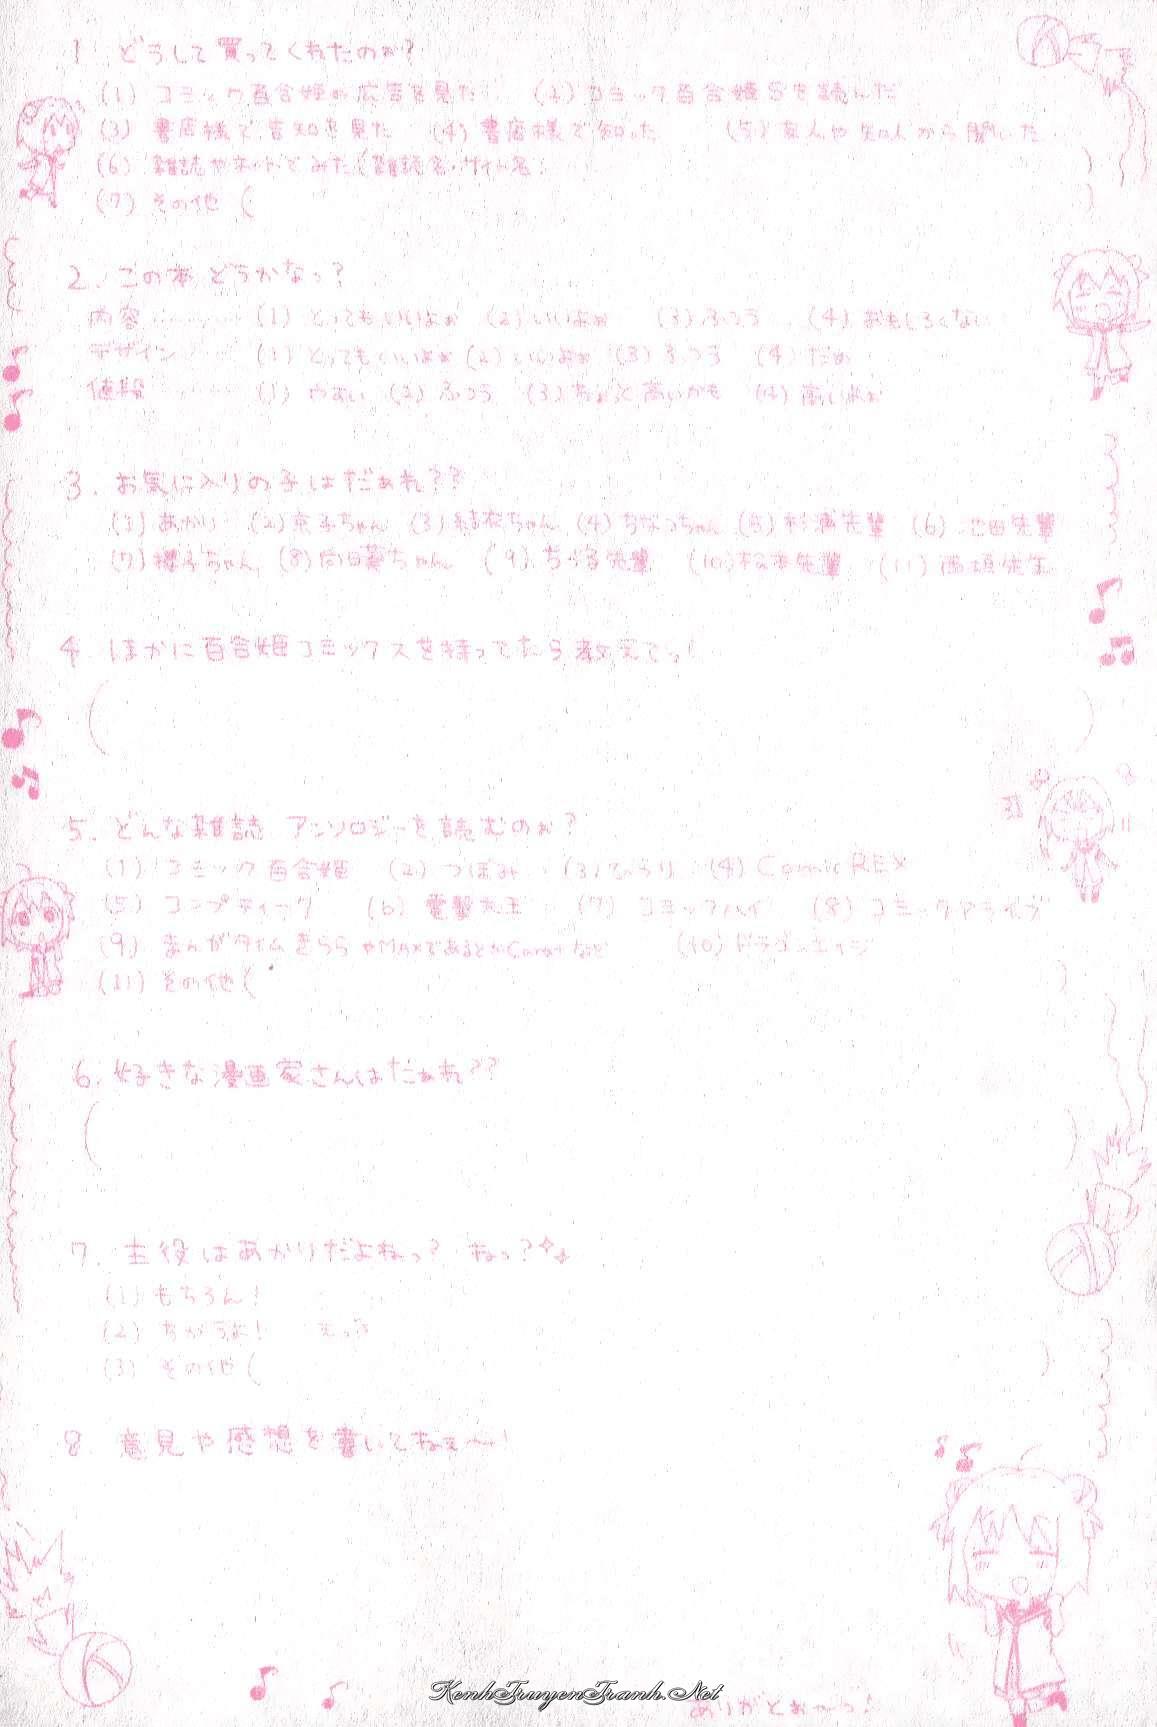 1. どうして買ってくれたのぉ?
(1) コミック百合姫の広告を見た (2) コミック百合姫Sを読んだ
(3) 書店様で告知を見た (4) 書店様で知った (5) 友人や知人から聞いた
(6) 雑誌やネットでみた(雑誌名・サイト名: )
(7) その他 ( )
2. この本どうかなっ?
内容………… (1) とってもいいよぉ (2) いいよぉ (3) ふつう (4) おもしろくない
デザイン…… (1) とってもいいよぉ (2) いいよぉ (3) ふつう (4) だめ
値段………… (1) やすい (2) ふつう (3) ちょっと高いかも (4) 高いよぉ
3. お気に入りの子はだぁれ??
(1) あかり (2) 京子ちゃん (3) 結衣ちゃん (4) ちなつちゃん (5) 杉浦先輩 (6) 池田先輩
(7) 櫻子ちゃん (8) 向日葵ちゃん (9) ちとせ先輩 (10) 松本先輩 (11) 西垣先生
4. ほかに百合姫コミックスを持ってたら教えてっ!
( )
5. どんな雑誌 アンソロジーを読むのぉ?
(1) コミック百合姫 (2) つぼみ (3) ひらり (4) Comic REX
(5) コンプティーク (6) 電撃大王 (7) コミックハイ (8) コミックアライブ
(9) まんがタイムきららやMAXであるとかCaratなど (10) ドラゴンエイジ
(11) その他 ( )
6. 好きな漫画家さんはだぁれ??
( )
7. 主役はあかりだよねっ? ねっ?
(1) もちろん!
(2) ちがうよ! えっ
(3) その他 ( )
8. 意見や感想を書いてねぇ〜!
KenhTruyenTranh.Net
ありがとぉーっ!